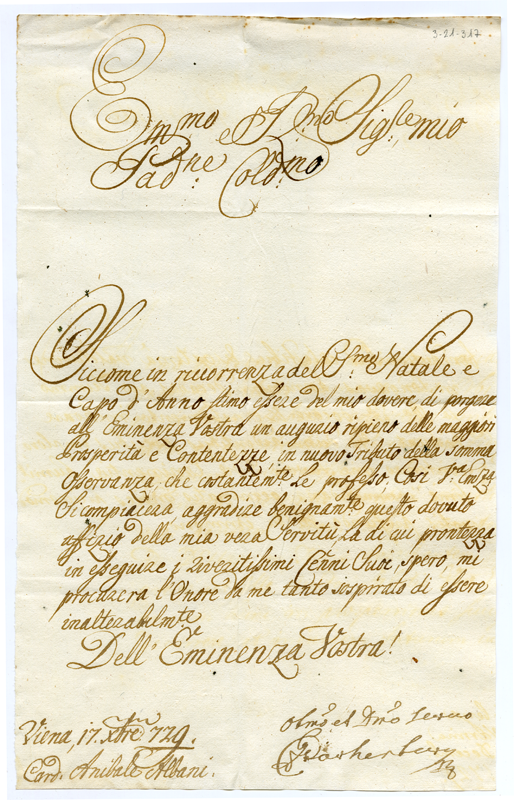 3-21-317
Em.mo e R.mo Sig.re mio
Pad.ne Col.mo
Siccome in ricorrenza del S.smo Natale e
Capo d'Anno stimo essere del mio dovere di porgere
all'Eminenza Vostra un augurio ripieno delle maggiori
Prosperità e Contentezze, in nuovo Tributo della somma
Osservanza, che costantem.te Le professo, Così V.ra Em.za
Si compiacerà aggradire benignam.te questo dovuto
uffizio della mia vera Servitù, la di cui prontezza
in esseguire i riveritissimi Cenni Suoi, spero, mi
procurerà l'Onore da me tanto sospirato di essere
inalterabilm.te
Dell'Eminenza Vostra!
Viena, 17. Xbre 729.
Card. Anibale Albani.